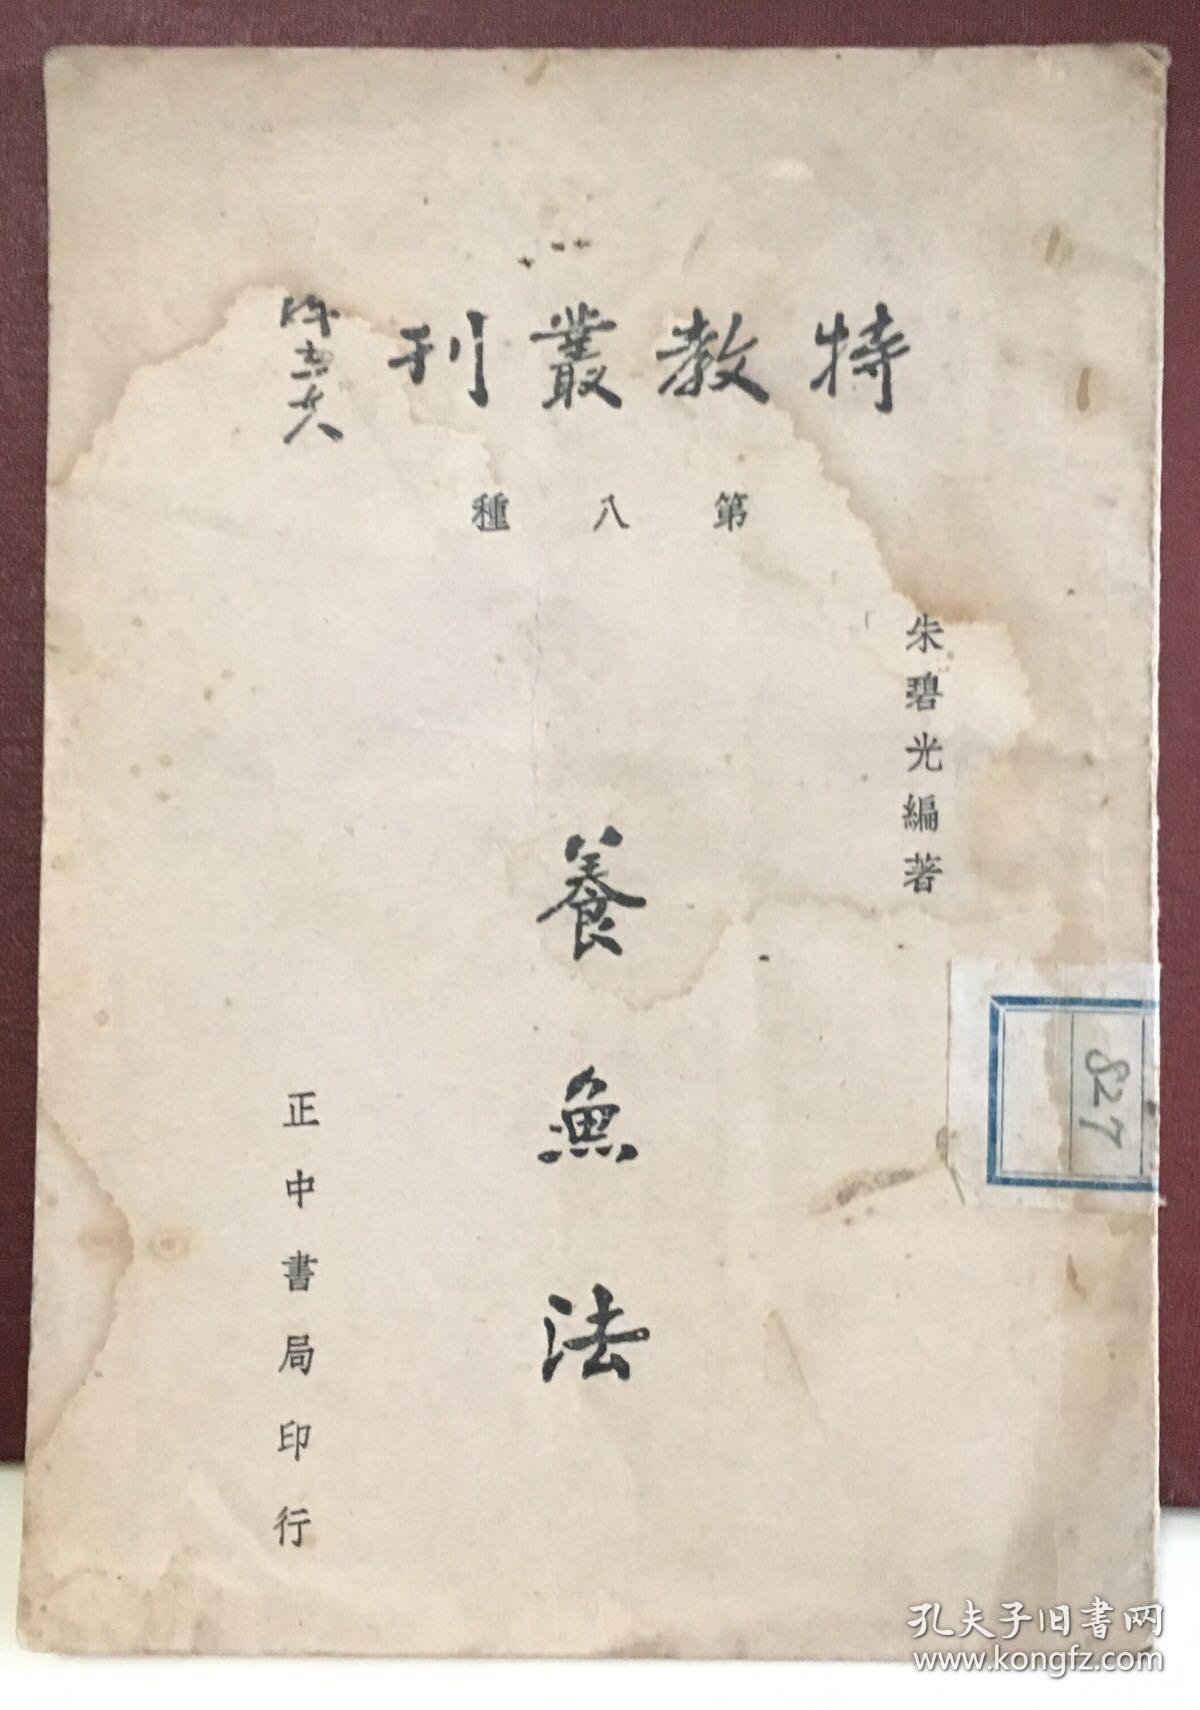 特教叢刊
第八種
朱碧光編著
養魚法
正中書局印行
827
孔夫子旧书网
www.kongfz.com